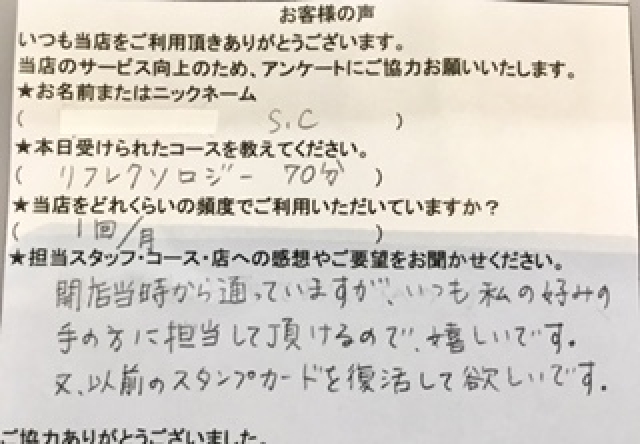 お客様の声
いつも当店をご利用頂きありがとうございます。
当店のサービス向上のため、アンケートにご協力お願いいたします。
★お名前またはニックネーム
( S.C )
★本日受けられたコースを教えてください。
( リフレクソロジー 70分 )
★当店をどれくらいの頻度でご利用いただいていますか？
( 1回/月 )
★担当スタッフ・コース・店への感想やご要望をお聞かせください。
開店当時から通っていますが、いつも私の好みの
手の方に担当して頂けるので、嬉しいです。
又、以前のスタンプカードを復活して欲しいです。
ご協力ありがとうございました。